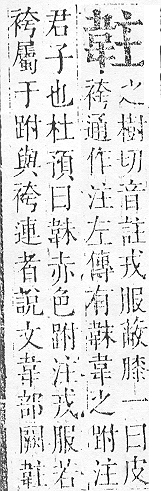 𩊓之樹切音註戎服蔽膝一曰皮
袴通作注左傳有韎韋之跗注
君子也杜預曰韎赤色跗注戎服若
袴屬于跗與袴連者說文韋部闕𩊓